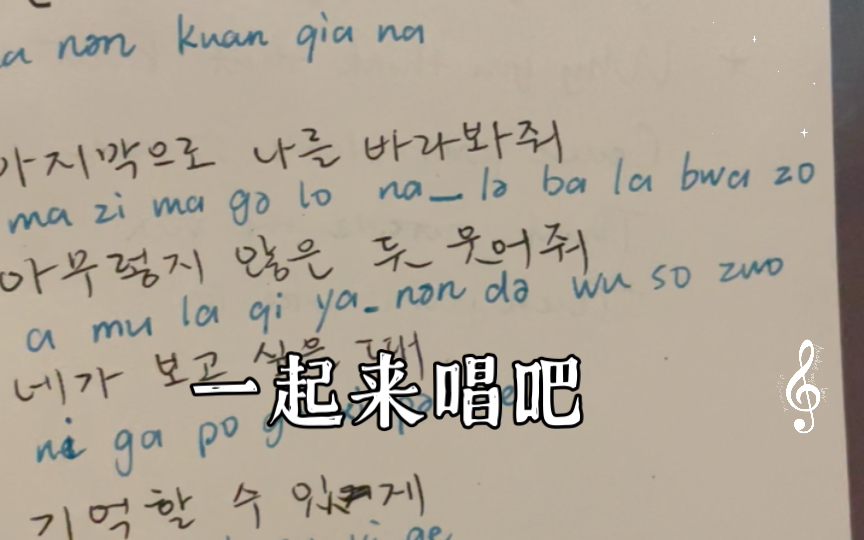 a nən kuan qia na
마지막으로 나를 바라봐줘
ma zi ma gə lo na_lə ba la bwa zo
아무렇지 않은 듯 웃어줘
a mu la qi ya_nən də wu so zuo
네가 보고 싶을 때
一起来唱吧
ni ga po g
기억할 수 있게